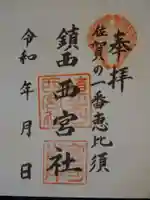 奉拝
佐賀の一番恵比須
鎮西
西宮社
令和 年 月 日